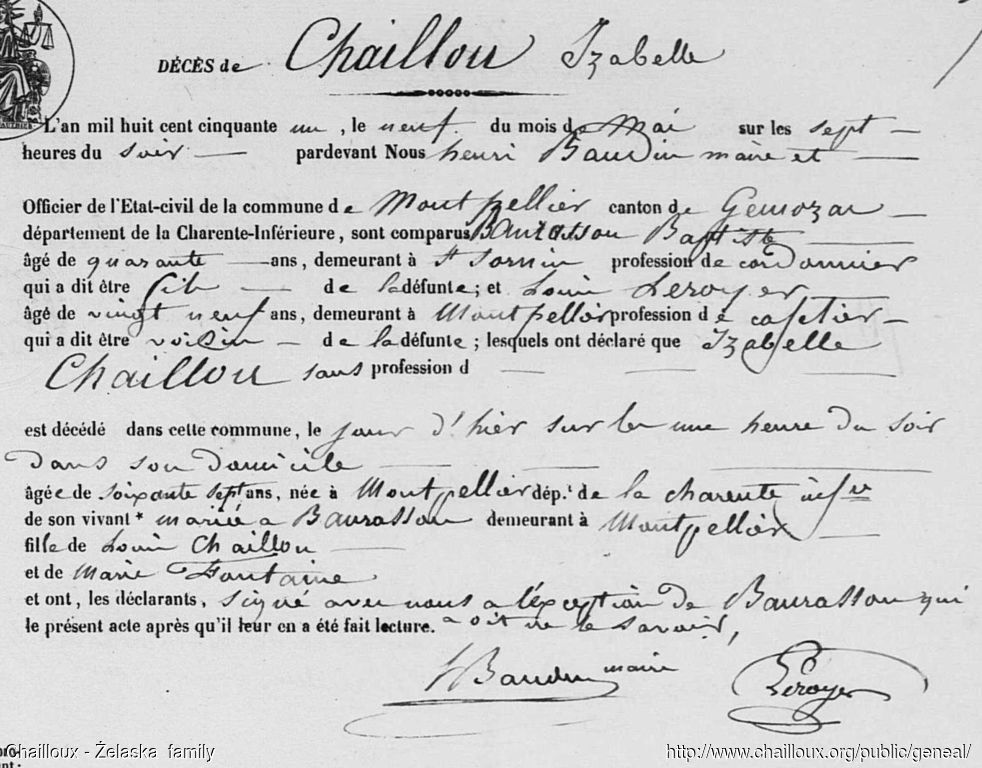 DÉCÈS de Chaillou Izabelle
L'an mil huit cent cinquante un, le neuf du mois de Mai sur les sept
heures du soir pardevant Nous henri Baudin maire et
Officier de l'Etat-civil de la commune de Montpellier canton de Gemozac
département de la Charente-Inférieure, sont comparus Baurasson Baptiste
âgé de quarante ans, demeurant à St Sornin profession de cordonnier
qui a dit être fils de la défunte; et Louis Leroyer
âgé de vingt neuf ans, demeurant à Montpellier profession de cafetier
qui a dit être voisin de la défunte; lesquels ont déclaré que Izabelle
Chaillou sans profession d
est décédé dans cette commune, le jour d'hier sur les une heure du soir
dans son domicile
âgée de soixante sept ans, née à Montpellier dép.t de la charente infre
de son vivant* mariée a Baurasson demeurant à Montpellier
fille de Louis Chaillou
et de Marie Fontaine
et ont, les déclarants, signé avec nous a l'éxception de Baurasson qui
le présent acte après qu'il leur en a été fait lecture. a dit ne le savoir,
Baudin maire Leroyer
Chailloux - Želaska family http://www.chailloux.org/public/geneal/